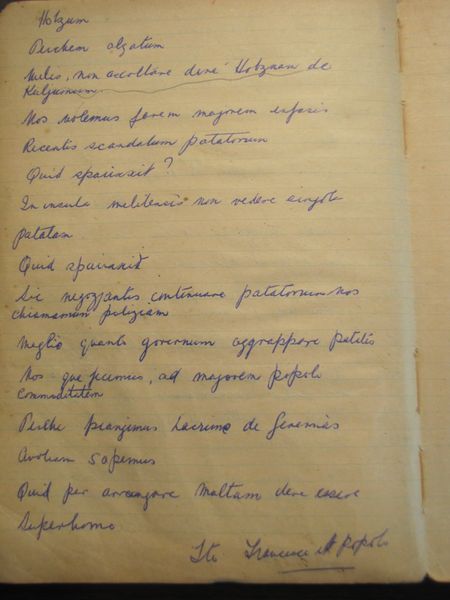 Hobzum
Perchem alzatum
Nulis, non ascoltare dire Hobznam de
Kuljumum.
Nos volemus farem majorem enfasis
Recentis scandalum patatorum
Quid spairixit?
In insula melitensis non vedere singola
patatam
Quid spairixit
Sic negozjantis continuare patatorum nos
chiamamum polizeam
Meglio quanto governum aggrappare patatis
Nos que fecimus, ad majorem popoli
commoditatem
Perche pianjimus lacrime de Geremias
Avoliam sapemus
Quid per arrangare Maltam dere essere
Superhomo
Ito Francesco popolo